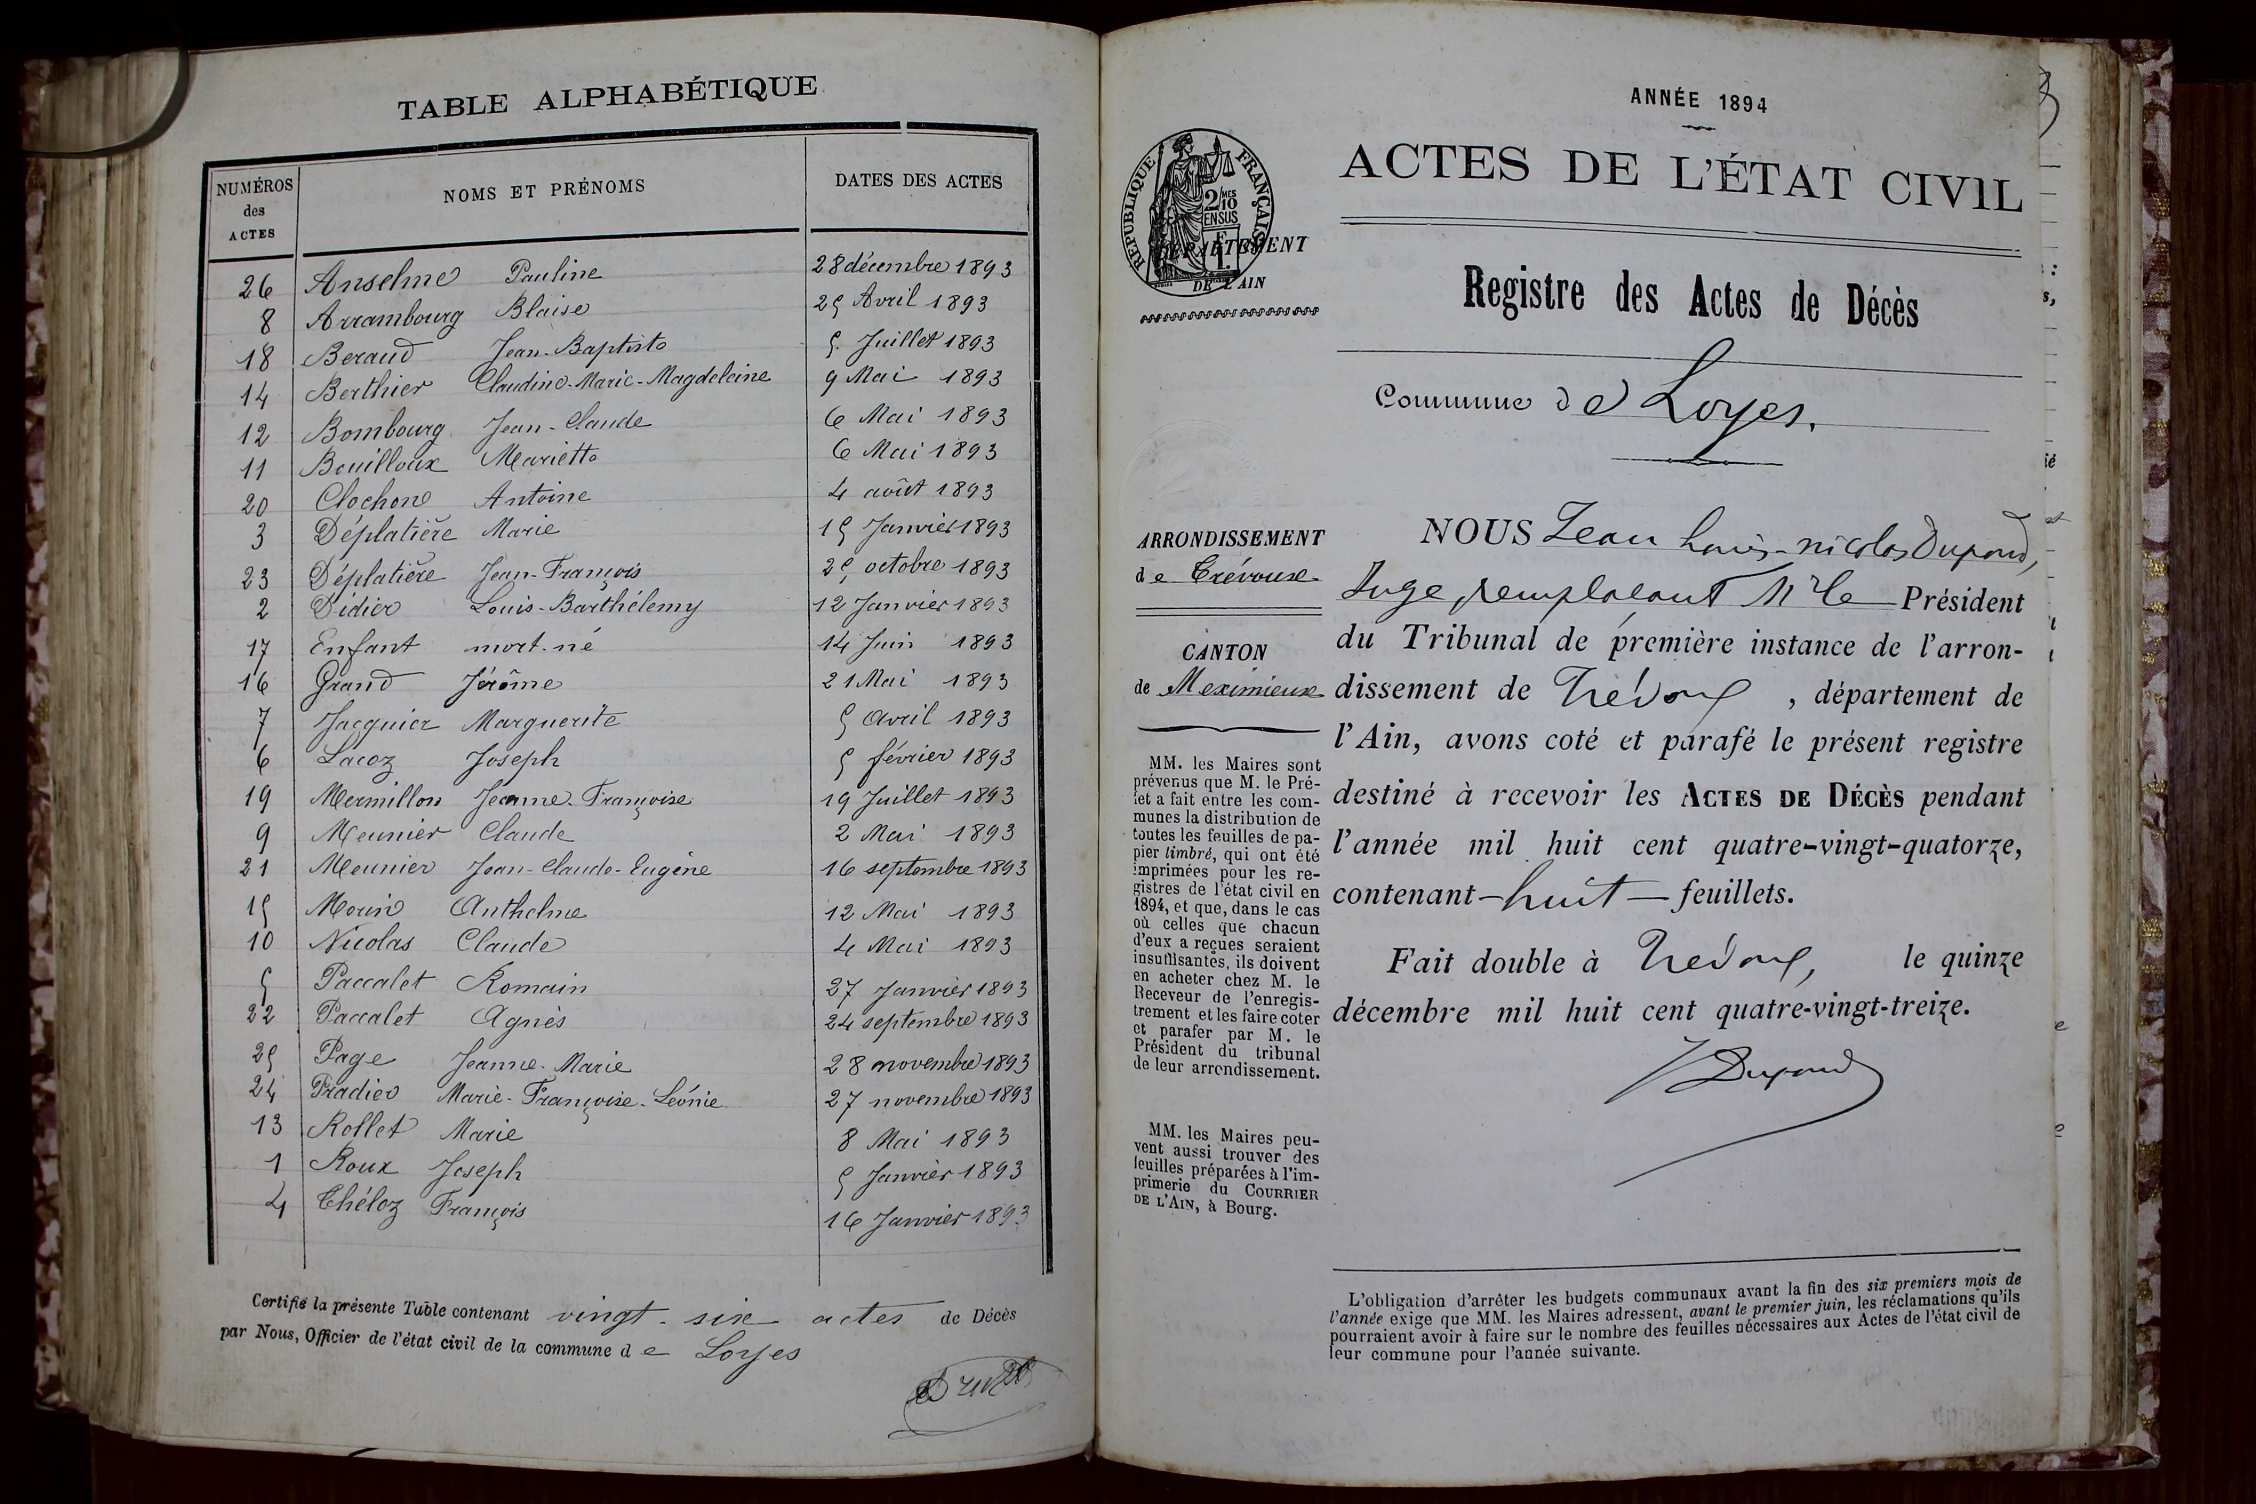 TABLE ALPHABÉTIQUE
NUMÉROS des ACTES NOMS ET PRÉNOMS DATES DES ACTES
26 Anselme Pauline 28 décembre 1893
8 Arrambourg Blaise 25 Avril 1893
18 Beraud Jean-Baptiste 5 Juillet 1893
14 Berthier Claudine-Marie-Magdeleine 9 Mai 1893
12 Bombourg Jean-Claude 6 Mai 1893
11 Bouilloux Mariette 6 Mai 1893
20 Clochone Antoine 4 août 1893
3 Déplatière Marie 15 Janvier 1893
23 Déplatière Jean-François 25 octobre 1893
2 Didier Louis-Barthélemy 12 Janvier 1893
17 Enfant mort-né 14 Juin 1893
16 Grand Jérôme 21 Mai 1893
7 Jacquier Marguerite 5 Avril 1893
6 Lacoz Joseph 5 février 1893
19 Mermillon Jeanne-Françoise 19 Juillet 1893
9 Meunier Claude 2 Mai 1893
21 Meunier Jean-Claude-Eugène 16 septembre 1893
15 Morin Anthelme 12 Mai 1893
10 Nicolas Claude 4 Mai 1893
5 Paccalet Romain 27 Janvier 1893
22 Paccalet Agnès 24 septembre 1893
25 Page Jeanne-Marie 28 novembre 1893
24 Pradier Marie-Françoise-Léonie 27 novembre 1893
13 Rollet Marie 8 Mai 1893
1 Roux Joseph 5 Janvier 1893
4 Chéloz François 16 Janvier 1893
Certifié la présente Table contenant vingt-six actes de Décès
par Nous, Officier de l'état civil de la commune de Loyes
ANNÉE 1894
ACTES DE L'ÉTAT CIVIL
REPUBLIQUE FRANÇAISE
2/10 MES
EN SUS
DÉPARTEMENT
DE L'AIN
Registre des Actes de Décès
Commune de Loyes.
ARRONDISSEMENT
de Trévoux
CANTON
de Meximieux
MM. les Maires sont
prévenus que M. le Pré-
fet a fait entre les com-
munes la distribution de
toutes les feuilles de pa-
pier timbré, qui ont été
imprimées pour les re-
gistres de l'état civil en
1894, et que, dans le cas
où celles que chacun
d'eux a reçues seraient
insuffisantes, ils doivent
en acheter chez M. le
Receveur de l'enregis-
trement et les faire coter
et parafer par M. le
Président du tribunal
de leur arrondissement.
MM. les Maires peu-
vent aussi trouver des
feuilles préparées à l'im-
primerie du COURRIER
DE L'AIN, à Bourg.
NOUS Jean Louis-nicolas Dupond,
Juge, remplaçant Mr le Président
du Tribunal de première instance de l'arron-
dissement de Trévoux, département de
l'Ain, avons coté et parafé le présent registre
destiné à recevoir les ACTES DE DÉCÈS pendant
l'année mil huit cent quatre-vingt-quatorze,
contenant — huit — feuillets.
Fait double à Trévoux, le quinze
décembre mil huit cent quatre-vingt-treize.
Dupond
L'obligation d'arrêter les budgets communaux avant la fin des six premiers mois de
l'année exige que MM. les Maires adressent, avant le premier juin, les réclamations qu'ils
pourraient avoir à faire sur le nombre des feuilles nécessaires aux Actes de l'état civil de
leur commune pour l'année suivante.